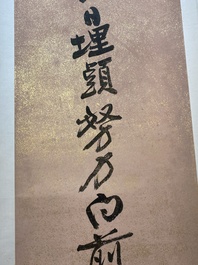 日埋頭努力向前